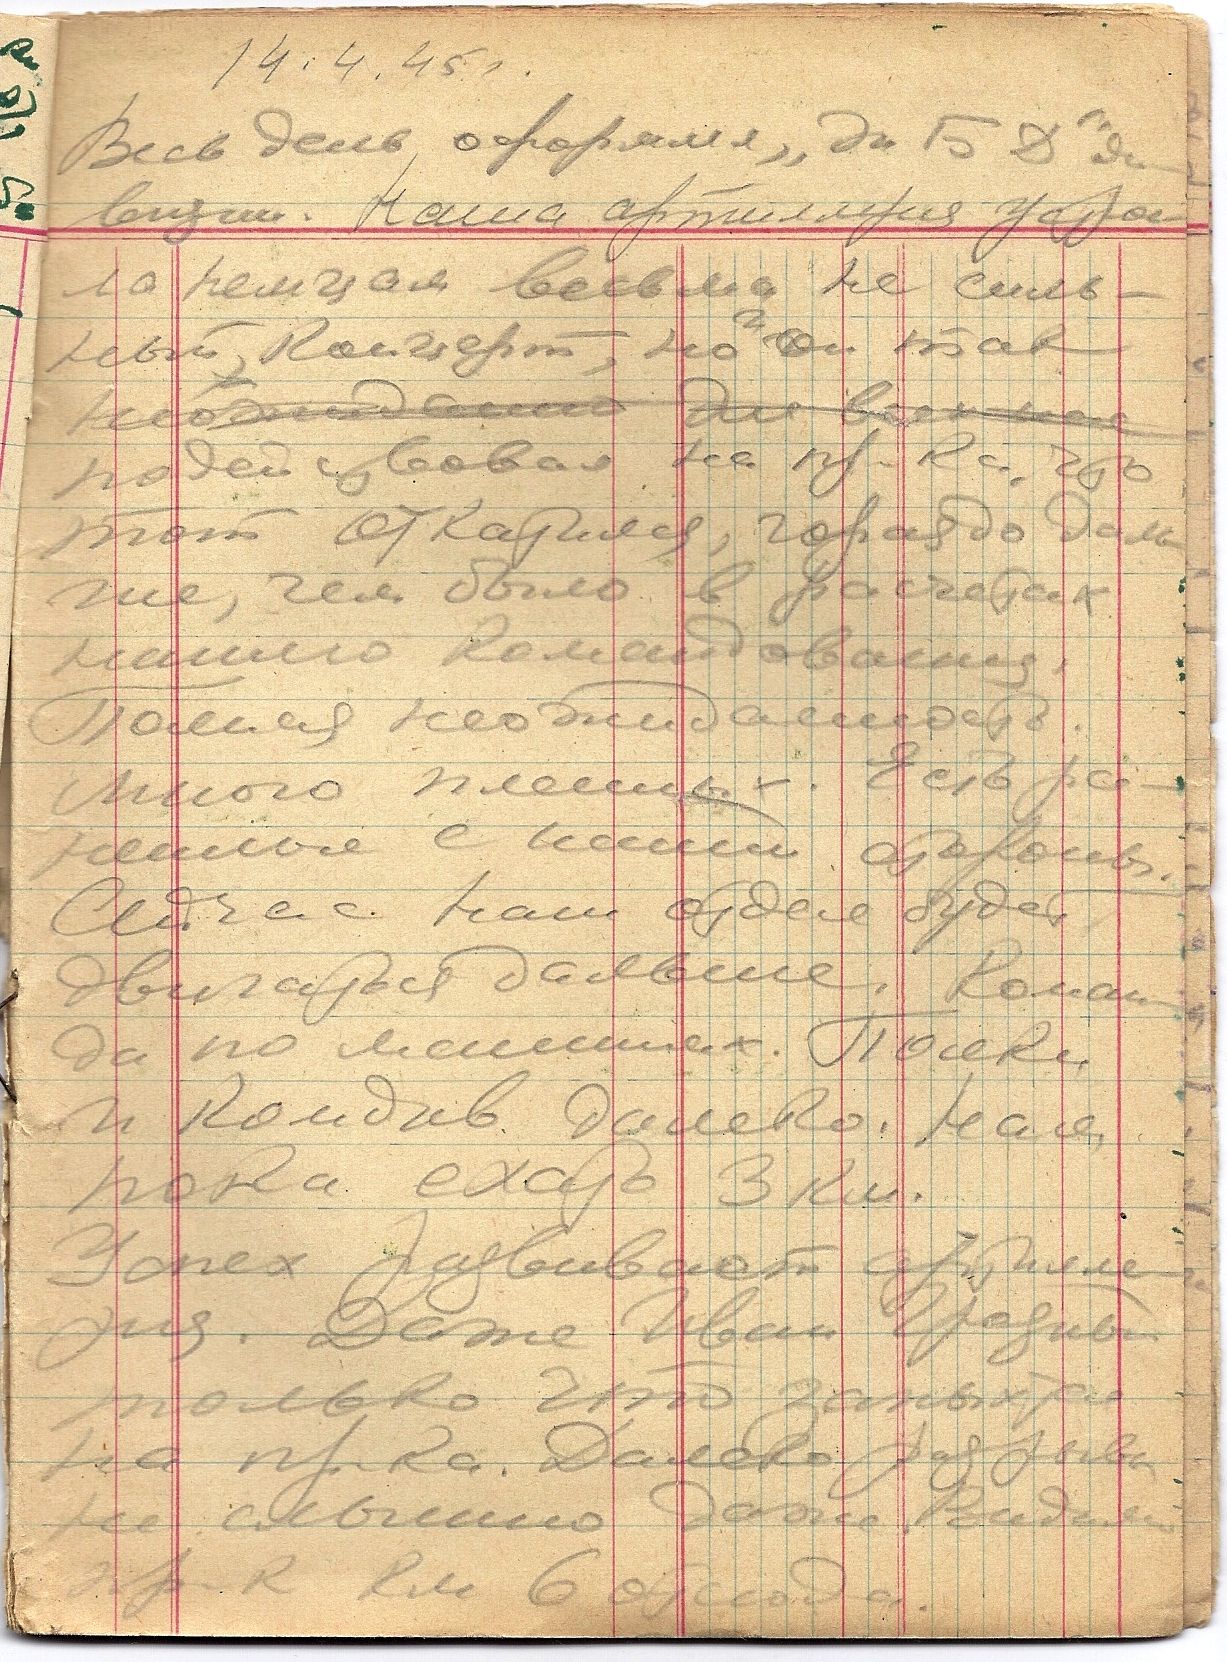 14.4.45 г.
Весь день оформлял „За БД" ди
визии. Наша артиллерия устрои
ла немцам весьма не силь-
ный „концерт, но" он так
неожиданно для всех нас
подействовал на пр-ка, что
тот откатился, гораздо даль
ше, чем было в расчетах
нашего командования.
Полная неожиданность.
Много пленных. Есть ра-
неные с нашей стороны.
Сейчас наш отдел будет
двигаться дальше. Коман
да по машинам. Полки
и комдив далеко. Нам,
пока ехать 3 км.
Успех развивает артилле-
рия. Даже Иван Грозный
только что
на пр-ка. Далеко разрыва
не слышно даже. Видимо
пр-к км 6 отсюда.